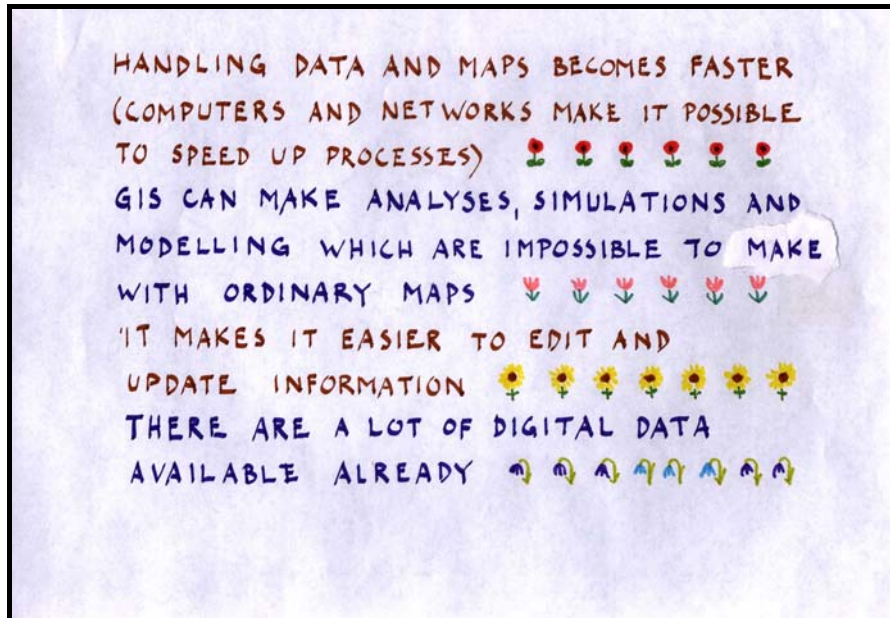 HANDLING DATA AND MAPS BECOMES FASTER
(COMPUTERS AND NETWORKS MAKE IT POSSIBLE
TO SPEED UP PROCESSES)
GIS CAN MAKE ANALYSES, SIMULATIONS AND
MODELLING WHICH ARE IMPOSSIBLE TO MAKE
WITH ORDINARY MAPS
IT MAKES IT EASIER TO EDIT AND
UPDATE INFORMATION
THERE ARE A LOT OF DIGITAL DATA
AVAILABLE ALREADY